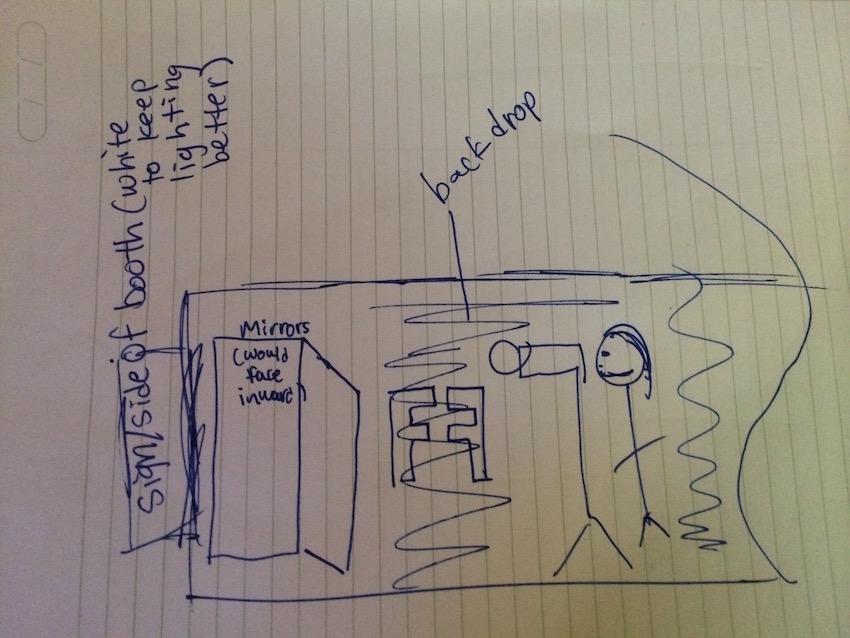 sign/side of booth (white
to keep
lighting
better)
backdrop
Mirrors
(would
face
inward)